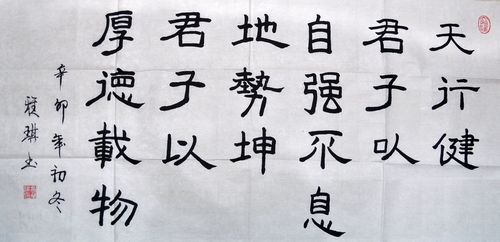 天行健
君子以
自强不息
地勢坤
君子以
厚德載物
辛卯年初冬